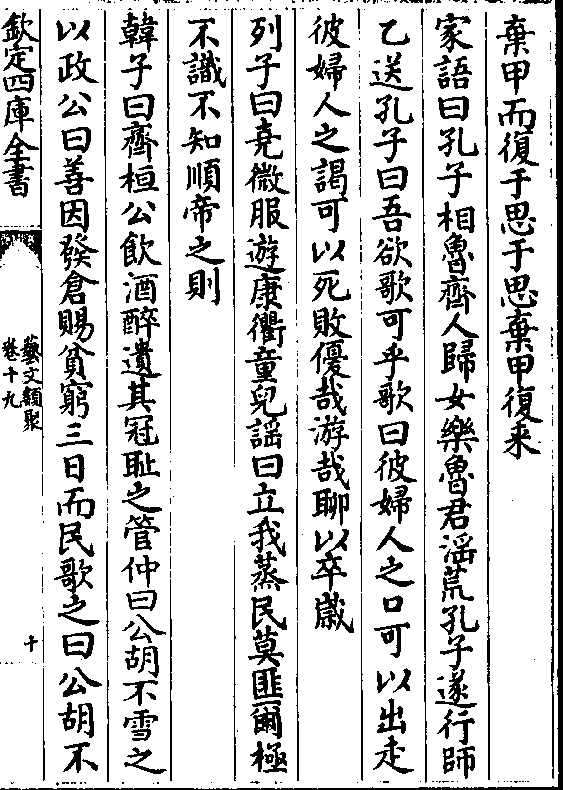 棄甲而復于思于思棄甲復来
家語曰孔子相魯齊人歸女樂魯君淫荒孔子遂行師
乙送孔子曰吾欲歌可乎歌曰彼婦人之口可以出走
彼婦人之謁可以死敗優哉游哉聊以卒歲
列子曰堯微服遊康衢童兒謡曰立我蒸民莫匪爾極
不識不知順帝之則
韓子曰齊桓公飲酒醉遺其冠耻之管仲曰公胡不雪之
以政公曰善因發倉賜貧窮三日而民歌之曰公胡不
欽定四庫全書
藝文類聚
卷十九
十